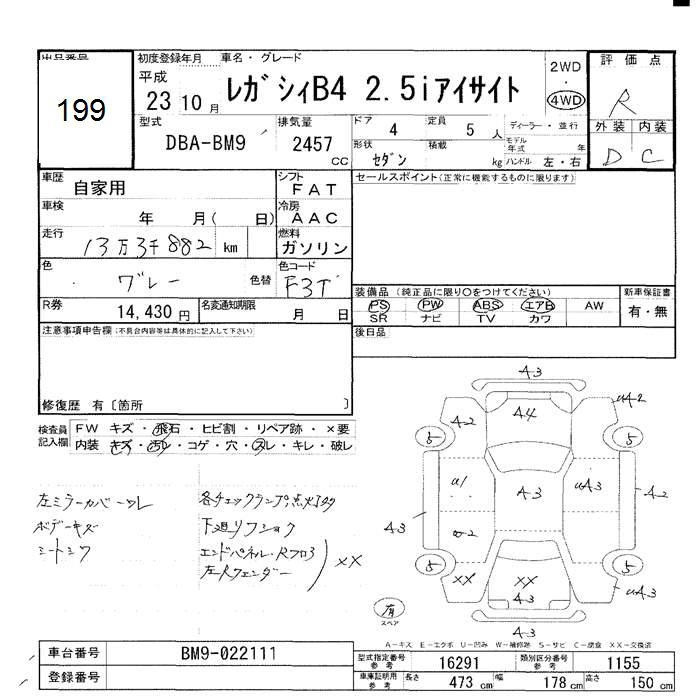 出品番号
199
初度登録年月
平成
23 10 月
車名・グレード
レガシィB4 2.5iアイサイト
2WD
・
4WD
評価点
R
外装 内装
D C
型式
DBA-BM9
排気量
2457
cc
ドア
4
定員
5 人
形状
セダン
積載
kg
ディーラー・並行
モデル年式 年
ハンドル 左・右
車歴
自家用
シフト
FAT
車検
年 月( 日)
冷房
AAC
走行
13万3千882 km
燃料
ガソリン
色
グレー
色替
色コード
R券
14,430 円
名変通知期限
月 日
セールスポイント(正常に機能するものに限ります)
装備品(純正品に限り〇をつけてください)
PS PW ABS エアB AW
SR ナビ TV カワ
新車保証書
有・無
後日品
注意事項申告欄(不具合内容等は具体的に記入して下さい)
修復歴 有〔箇所 〕
検査員記入欄
FW キズ・飛石・ヒビ割・リペア跡・×要
内装 キズ・汚レ・コゲ・穴・スレ・キレ・破レ
左ミラーカバーワレ
ボデーキズ
シートシワ
各チェックランプ点火
下廻リフショク
エンドパネル・Rフロア
左Rフェンダー
XX
A3
A2
A4
5
5
A3
A2
A3
XX
XX
5
5
A3
A3
有
スペア
A-キズ E-エクボ U-凹み W-補修跡 S-サビ C-腐食 XX-交換済
車台番号
BM9-022111
登録番号
型式指定番号
参考
16291
類別区分番号
参考
1155
車庫証明用
参考
長さ 473 cm
幅 178 cm
高さ 150 cm